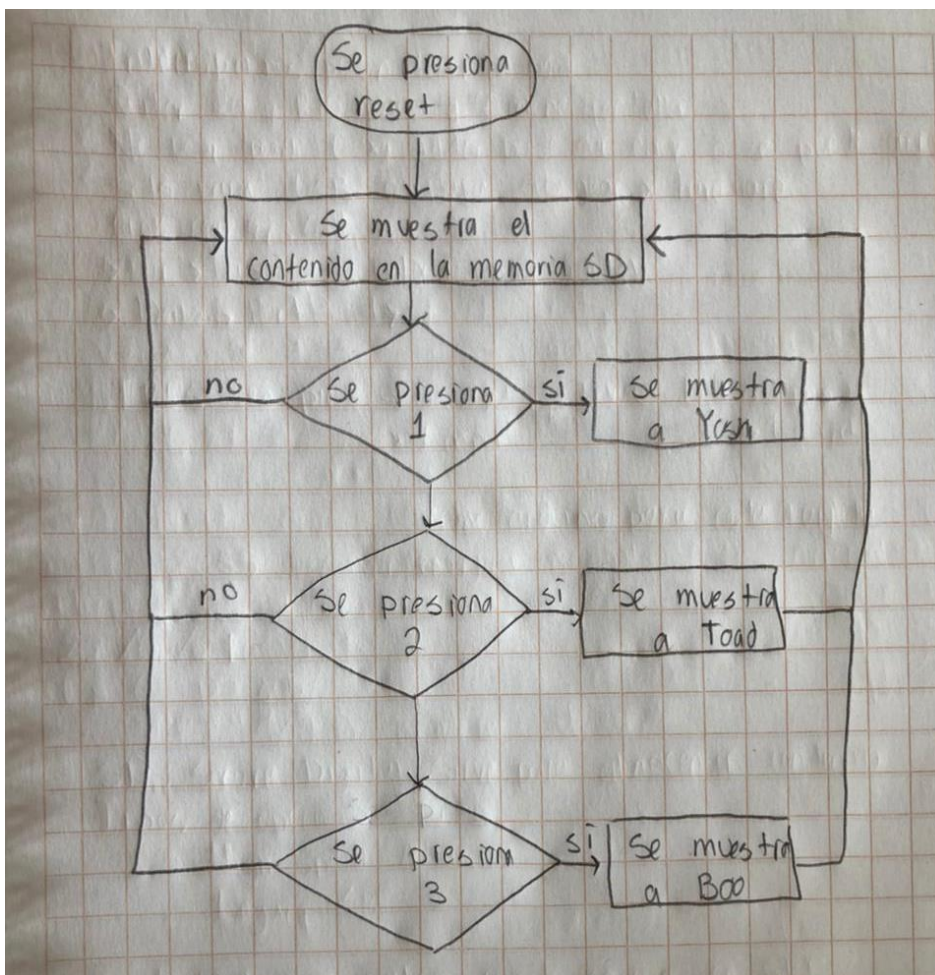 Se presiona
reset
Se muestra el
contenido en la memoria SD
no
Se presiona
1
si
Se muestra
a Yosh
no
Se presiona
2
si
Se muestra
a Toad
Se presiona
3
si
Se muestra
a Boo